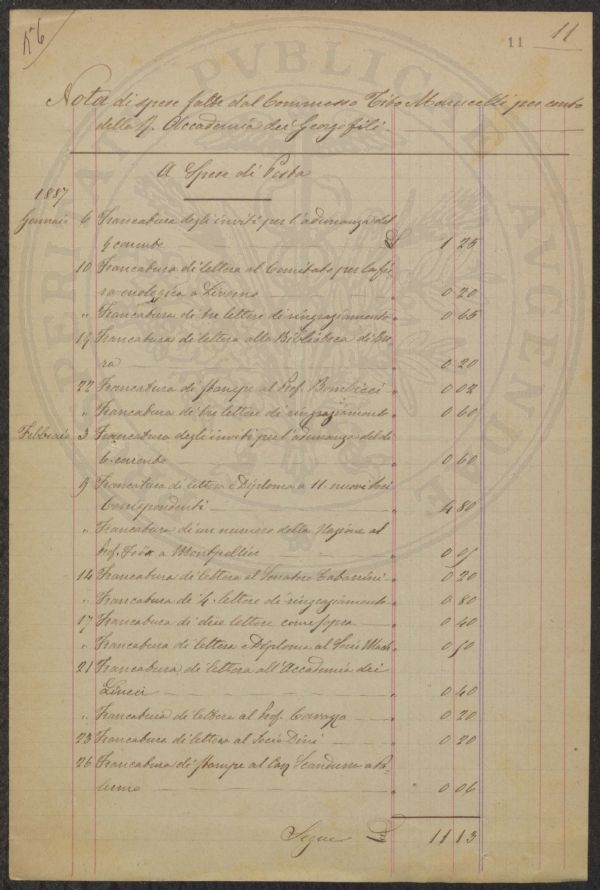 N° 6
11 11
Nota di spese fatte dal Commesso Tito Marucelli per conto
della R. Accademia dei Georgofili
A Spese di Posta
1887
Gennaio 6 Francatura degli inviti per l'adunanza del
9 corrente £ 1 25
10 Francatura di lettera al Comitato per la fie
ra enologica a Livorno " 0 20
" Francatura di tre lettere di ringraziamento " 0 65
19 Francatura di lettera alla Biblioteca di
" 0 20
22 Francatura di stampe al Prof. Bombicci " 0 02
" Francatura di tre lettere di ringraziamento " 0 60
Febbraio 3 Francatura degli inviti per l'adunanza del dì
6 corrente " 0 60
9 Francatura di lettera e Diploma a 11 nuovi soci
Corrispondenti " 4 80
" Francatura di un numero della Nazione al
Prof. Foëx a Montpellier " 0 05
14 Francatura di lettera al Senatore Tabarrini " 0 20
" Francatura di 4 lettere di ringraziamento " 0 80
17 Francatura di due lettere come sopra " 0 40
" Francatura di lettera e Diploma al Socio " 0 50
21 Francatura di lettera all'Accademia dei
Lincei " 0 40
" Francatura di lettera al Prof. Cavazza " 0 20
23 Francatura di lettera al Socio Dini " 0 20
26 Francatura di stampe al Cav Scandurra a Pa
lermo " 0 06
Segue £ 11 13
PERIAE PVBLICAE AVGENDAE